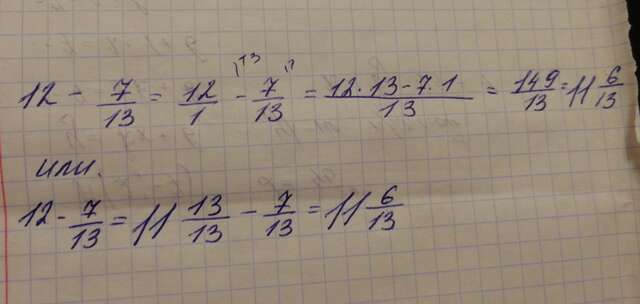 12 - 7/13 = 12/1 - 7/13 = (12·13-7·1)/13 = 149/13 = 11 6/13
или.
12 - 7/13 = 11 13/13 - 7/13 = 11 6/13